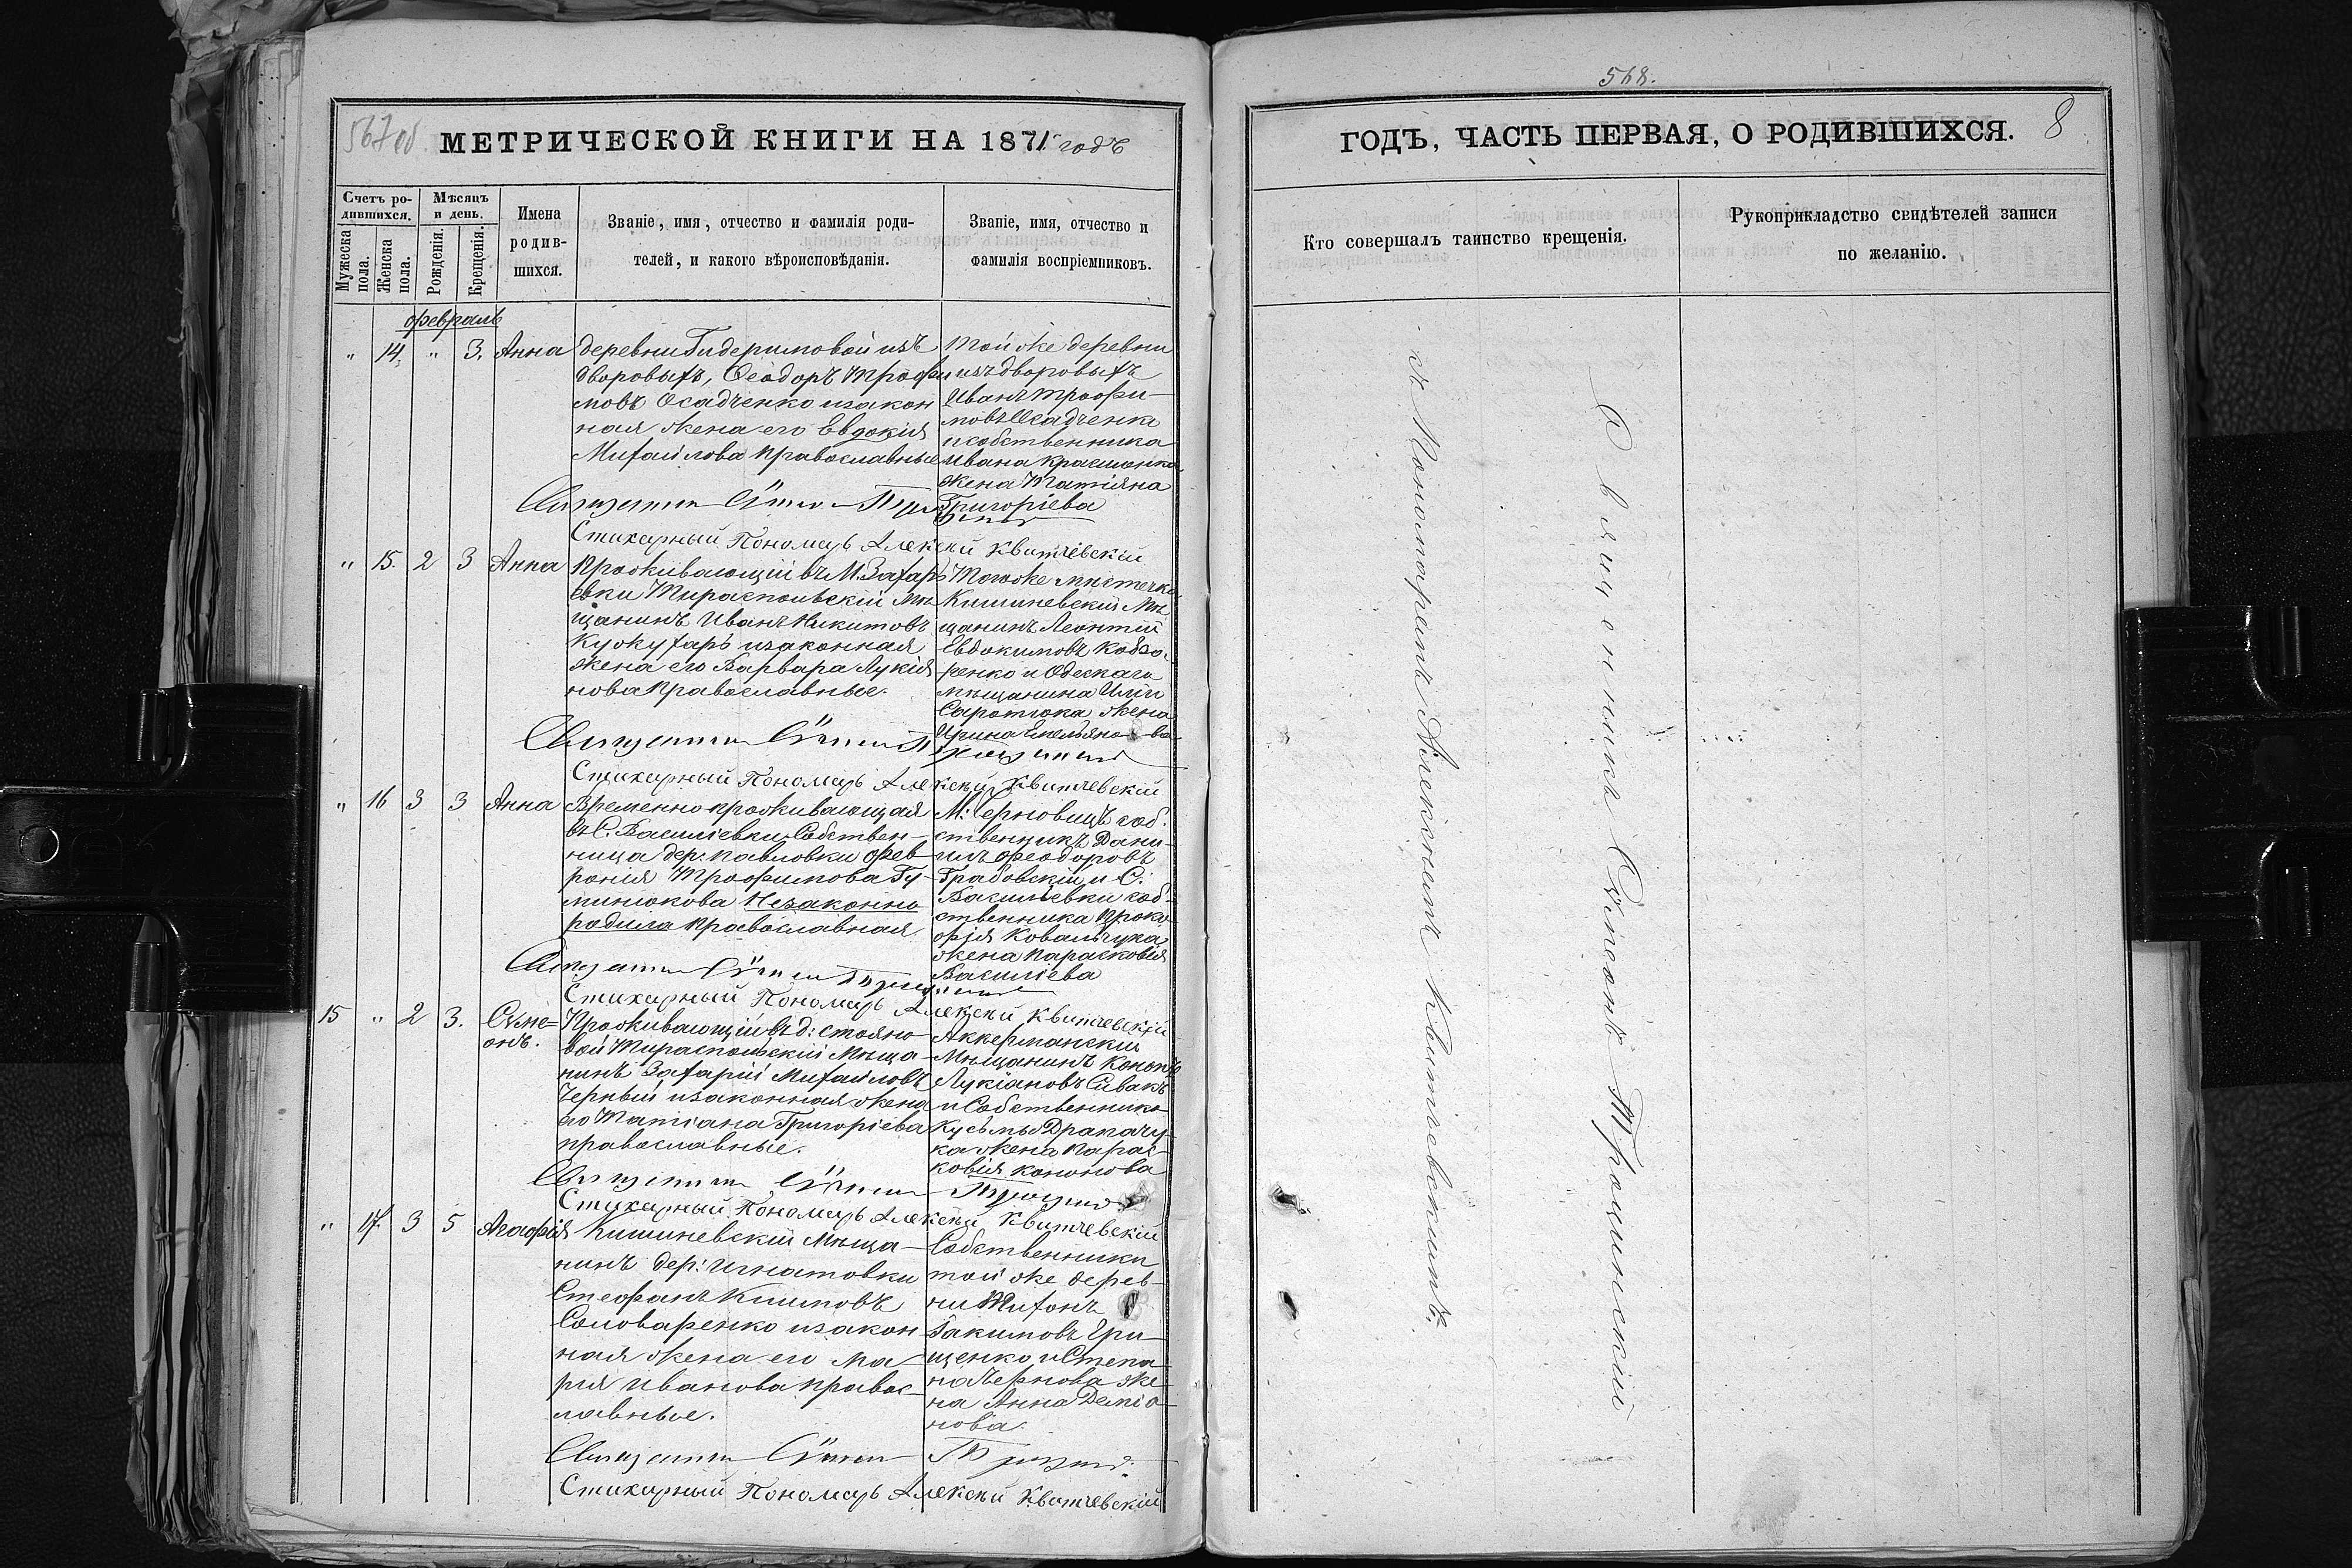 567 об.
МЕТРИЧЕСКОЙ КНИГИ НА 1871 годъ
Счетъ ро-
дившихся.
Мужеска
пола.
Женска
пола.
Мѣсяцъ
и день.
Рожденія.
Крещенія.
Имена
родив-
шихся.
Званіе, имя, отчество и фамилія роди-
телей, и какого вѣроисповѣданія.
Званіе, имя, отчество и
фамилія воспріемниковъ.
февраль
" 14. " 3. Анна
деревни Гидеримовой изъ
дворовыхъ, Ѳеодоръ Трофи
мовъ Осадченко и закон
ная жена его Евдокія
Михайлова православные
Той же деревни
изъ дворовыхъ
Иванъ Трофи-
мовъ Осадченко
и собственника
Ивана
жена Татіяна
Григоріева
Священникъ Сѵмеонъ
Стихарный Пономарь Алексѣй Квитчевскій
" 15. 2 3 Анна
Проживающій въ М. Захарь
евки Тираспольскій мѣ
щанинъ Иванъ Никитовъ
и законная
жена его Варвара Лукія
нова православные.
Тогоже мѣстечка
Кишиневскій мѣ
щанинъ Леонтій
Евдокимовъ Кобза-
ренко и Одескаго
мѣщанина Иліи
Саротюка жена
Ирина Емельяно-ва
Священникъ Сѵмеонъ
Стихарный Пономарь Алексѣй Квитчевскій
" 16 3 3 Анна
Временно проживающая
въ С. Василіевки Собствен-
ница дер: Павловки Фев-
ронія Трофимова Гу-
минюкова Незаконно
родила православная
М: Черновицъ соб-
ственникъ Дани-
илъ Феодоровъ
Грабовскій и С:
Василіевки соб-
ственника Проко-
фія Ковальчука
жена Парасковія
Василіева
Священникъ Сѵмеонъ
Стихарный Пономарь Алексѣй Квитчевскій
15 " 2 3. Сѵме-
онъ.
Проживающій въ д: Стояно-
вой Тираспольскій Мѣща-
нинъ Захарій Михайловъ
Черный и законная жена
его Татіана Григоріева
православные.
Аккерманскій
Мѣщанинъ Кононъ
Лукіановъ Сивакъ
и Собственника
Кусьмы Драпачу-
ка жена Парас-
ковія Кононова
Священникъ Сѵмеонъ
Стихарный Пономарь Алексѣй Квитчевскій
" 17. 3 5 Агафія
Кишиневскій мѣща-
нинъ дер: Игнатовки
Стефанъ Климовъ
Соловаренко и закон
ная жена его Ма-
рія Иванова правос-
лавные.
Собственники
той же дерев-
ни Тихонъ
Іакимовъ Гри-
щенко и Степа-
на Чернова же-
на Анна Деміа-
нова.
Священникъ Сѵмеонъ
Стихарный Пономарь Алексѣй Квитчевскій
568.
ГОДЪ, ЧАСТЬ ПЕРВАЯ, О РОДИВШИХСЯ. 8
Кто совершалъ таинство крещенія.
Рукоприкладство свидѣтелей записи
по желанію.
Священникъ Сѵмеонъ
съ Пономаремъ Алексѣемъ Квитчевскимъ.